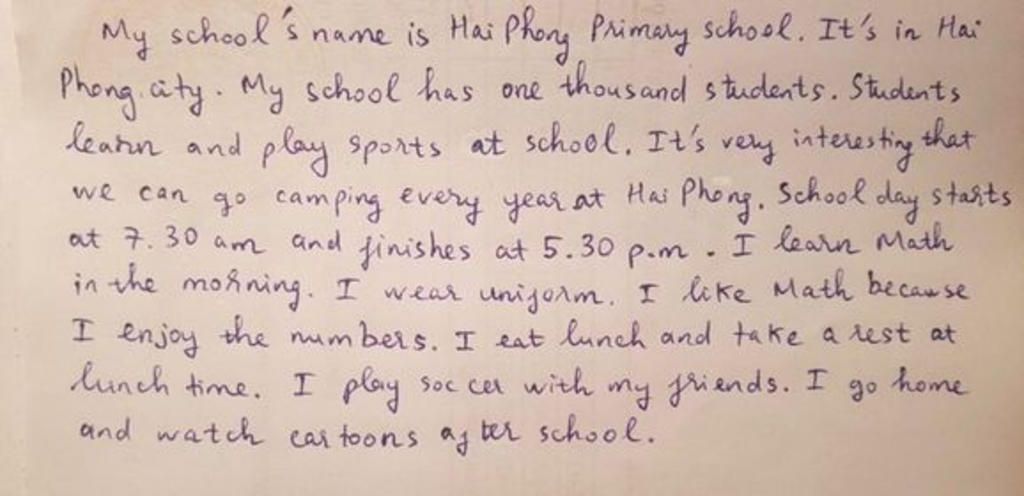 My school's name is Hai Phong Primary school. It's in Hai
Phong city. My school has one thousand students. Students
learn and play sports at school. It's very interesting that
we can go camping every year at Hai Phong. School day starts
at 7.30 am and finishes at 5.30 p.m. I learn Math
in the morning. I wear uniform. I like Math because
I enjoy the numbers. I eat lunch and take a rest at
lunch time. I play soccer with my friends. I go home
and watch cartoons after school.